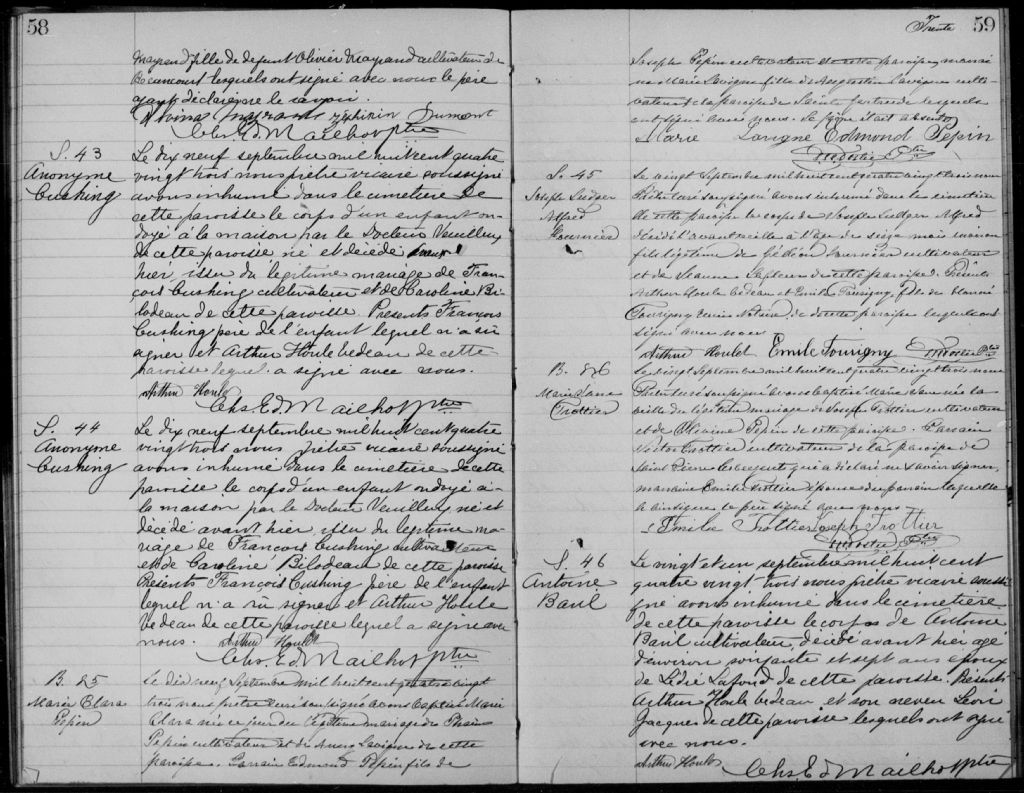 58
Mayrand fille de defunt Olivier Mayrand cultivateur de
Becancourt lesquels ont signé avec nous le père
ayant déclaré ne le savoir.
Zéphirin Dumont
Chs. Ed Mailhot Ptre
S. 43
Anonyme
Cushing
Le dix neuf septembre mil huit cent quatre
vingt trois nous prêtre vicaire soussigné
avons inhumé dans le cimetière de
cette paroisse le corps d'un enfant on-
doyé à la maison par le Docteur Veuilleux
de cette paroisse né et décédé
hier, issu du légitime mariage de Fran-
çois Cushing cultivateur et de Caroline Bi-
lodeau de cette paroisse. Présents François
Cushing père de l'enfant lequel n'a su
signer et Arthur Houle bedeau de cette
paroisse lequel a signé avec nous.
Arthur Houle
Chs. Ed Mailhot Ptre
S. 44
Anonyme
Cushing
Le dix neuf septembre mil huit cent quatre
vingt trois nous prêtre vicaire soussigné
avons inhumé dans le cimetière de cette
paroisse le corps d'un enfant ondoyé à
la maison par le Docteur Veuilleux né et
décédé avant hier issu du légitime ma-
riage de François Cushing cultivateur
et de Caroline Bilodeau de cette paroisse
Présents François Cushing père de l'enfant
lequel n'a su signer et Arthur Houle
bedeau de cette paroisse lequel a signé avec
nous.
Arthur Houle
Chs. Ed Mailhot Ptre
B. 85
Marie Clara
Pepin
Le dix neuf Septembre mil huit cent quatre vingt
trois nous prêtre curé soussigné avons baptisé Marie
Clara née ce jour du légitime mariage de
Pepin cultivateur et de Lavigne de cette
paroisse. Parrain Edmond Pepin fils de
Trente
59
Joseph Pepin cultivateur de cette paroisse, marrai-
ne Marie Lavigne fille de Augustin Lavigne culti-
vateur de la paroisse de Sainte Gertrude lesquels
ont signé avec nous. Le père était absent
Marie Lavigne Edmond Pepin
Ptre
S. 45
Joseph Ludger
Alfred
Fournier
Le vingt Septembre mil huit cent quatre vingt trois nous
Prêtre curé soussigné avons inhumé dans le cimetière
de cette paroisse le corps de Joseph Ludger Alfred
décédé l'avant veille à l'âge de seize mois
fils légitime de Gédéon Fournier cultivateur
et de de cette paroisse. Présents
Arthur Houle bedeau et Emile Tourigny, fils de
Tourigny Notaire, de cette paroisse lesquels ont
signé avec nous
Arthur Houle Emile Tourigny Ptre
B. 86
Marie
Trottier
Le vingt Septembre mil huit cent quatre vingt trois nous
Prêtre curé soussigné avons baptisé Marie née la
veille du légitime mariage de Joseph Trottier cultivateur
et de Olivine Pepin de cette paroisse. Parrain
Nestor Trottier cultivateur de la paroisse de
Saint Pierre les Becquets qui a déclaré ne savoir signer,
marraine Emilie Trottier épouse du parrain laquelle
a ainsi que le père signé avec nous
Emilie Trottier Joseph Trottier
Ptre
S. 46
Antoine
Baril
Le vingt et un septembre mil huit cent
quatre vingt trois nous prêtre vicaire soussi-
gné avons inhumé dans le cimetière
de cette paroisse le corps de Antoine
Baril cultivateur, décédé avant hier agé
d'environ soixante et sept ans époux
de Lédié Lafond de cette paroisse. Présents
Arthur Houle bedeau et son neveu Léon
Jacques de cette paroisse lesquels ont signé
avec nous.
Arthur Houle
Chs. Ed Mailhot Ptre